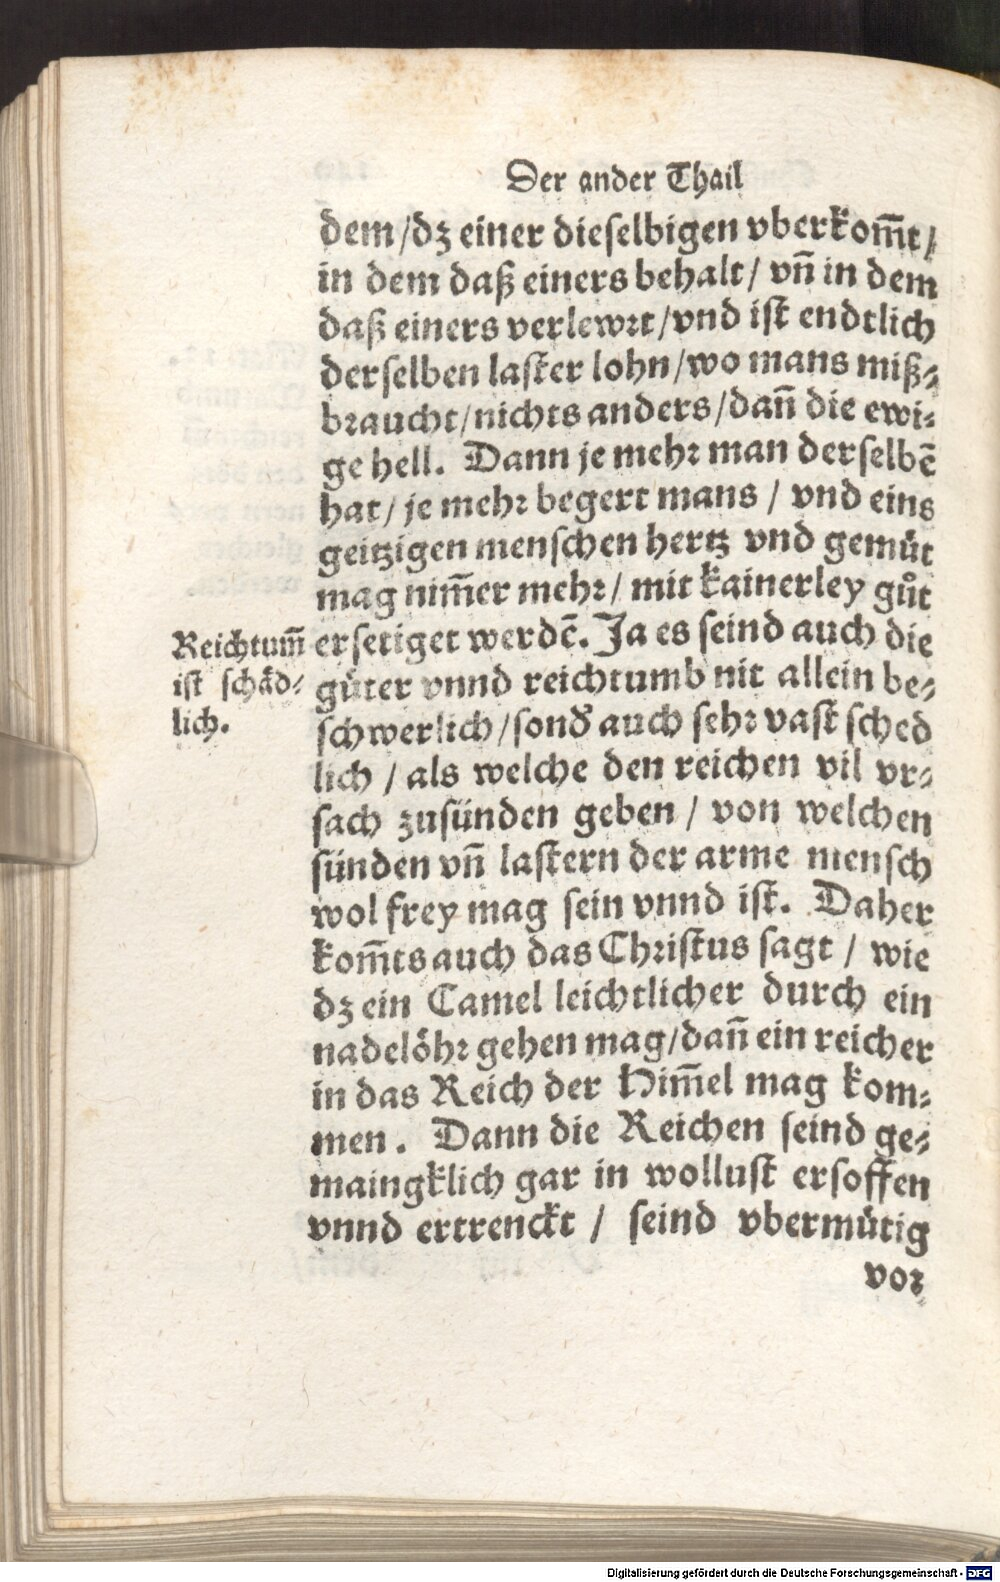 Der ander Thail
dem/dz einer dieſelbigen vberkom̃t/
in dem daß einers behalt/ vñ in dem
daß einers verlewrt/vnd iſt endtlich
derſelben laſter lohn/wo mans miß⸗
braucht/nichts anders/dañ die ewi⸗
ge hell. Dann je mehr man derſelbẽ
hat/ je mehr begert mans / vnd eins
geitzigen menſchen hertz vnd gemuͤt
mag nim̃er mehr/ mit kainerley guͦt
erſetiget werdẽ. Ja es ſeind auch die
guͤter vnnd reichtumb nit allein be⸗
ſchwerlich/ſond̓ auch ſehr vaſt ſched
lich / als welche den reichen vil vr⸗
ſach zuſünden geben / von welchen
ſünden vñ laſtern der arme menſch
wol frey mag ſein vnnd iſt. Daher
kom̃ts auch das Chriſtus ſagt / wie
dz ein Camel leichtlicher durch ein
nadeloͤhr gehen mag/dañ ein reicher
in das Reich der Him̃el mag kom⸗
men. Dann die Reichen ſeind ge⸗
maingklich gar in wolluſt erſoffen
vnnd ertrenckt / ſeind vbermuͤtig
vor
Reichtum̃
iſt ſchaͤd⸗
lich.
Digitalisierung gefördert durch die Deutsche Forschungsgemeinschaft - DFG